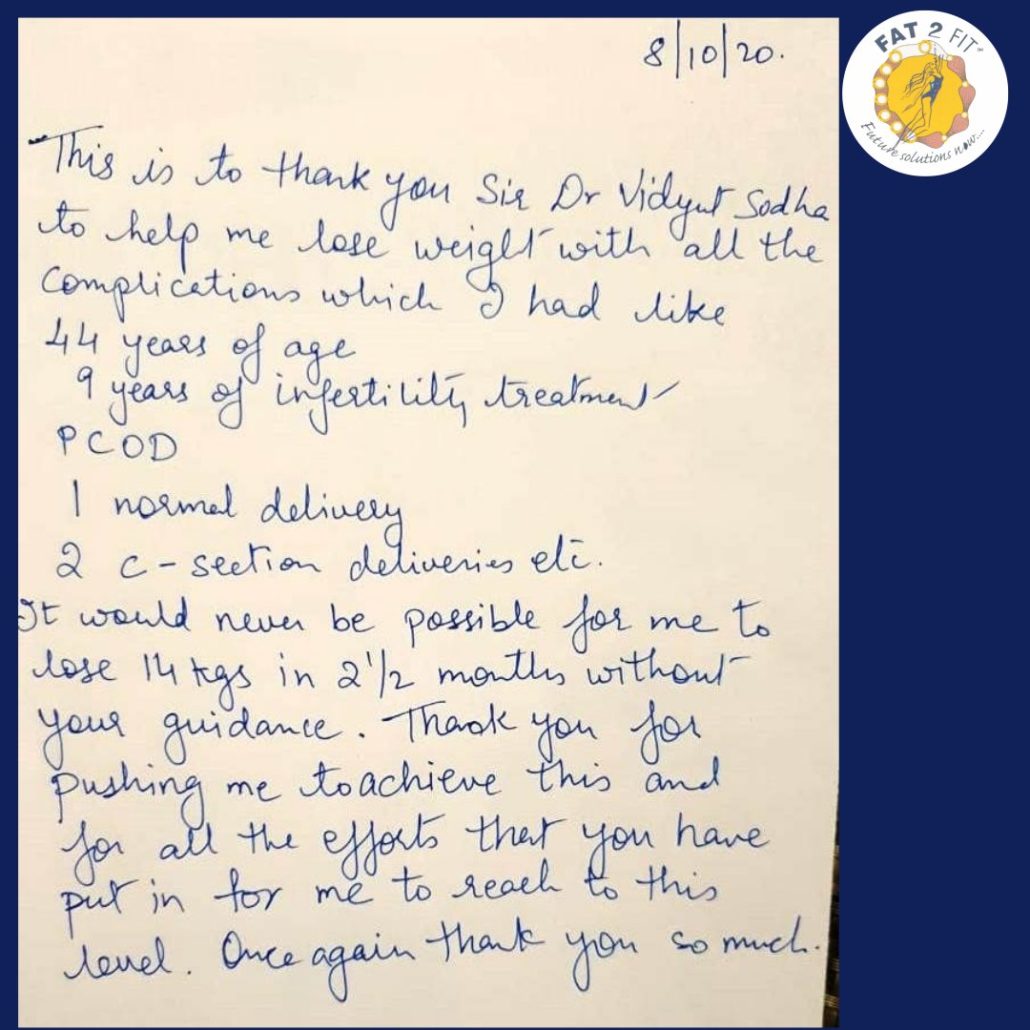 8/10/20.
FAT 2 FIT
Future solutions now...
This is to thank you Sir Dr Vidyut Sodha
to help me lose weight with all the
complications which I had like
44 years of age
9 years of infertility treatment
PCOD
1 normal delivery
2 c-section deliveries etc.
It would never be possible for me to
lose 14 kgs in 2 1/2 months without
your guidance. Thank you for
pushing me to achieve this and
for all the efforts that you have
put in for me to reach to this
level. Once again thank you so much.